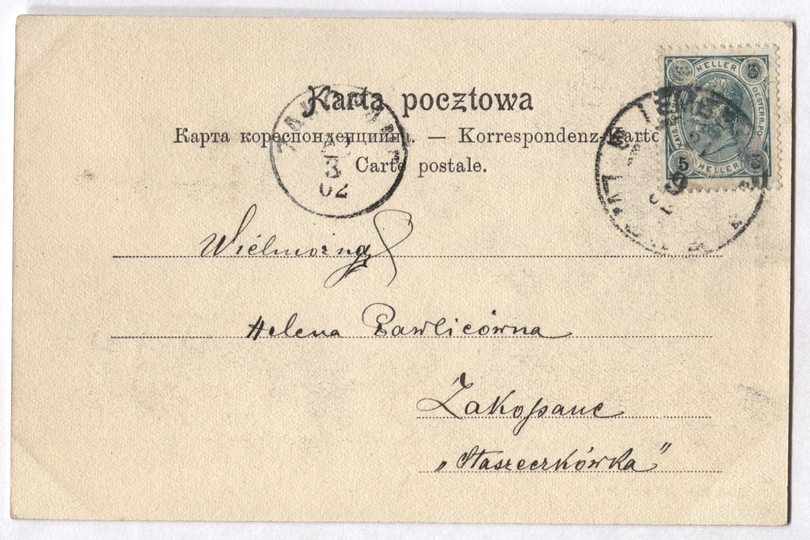 Karta pocztowa
Карта кореспонденцийна. — Korrespondenz-Karte
Carte postale.
5 HELLER 5
5 HELLER 5
3
02
Wielmożna
Helena Pawlicówna
Zakopane
„Staszeczkówka”